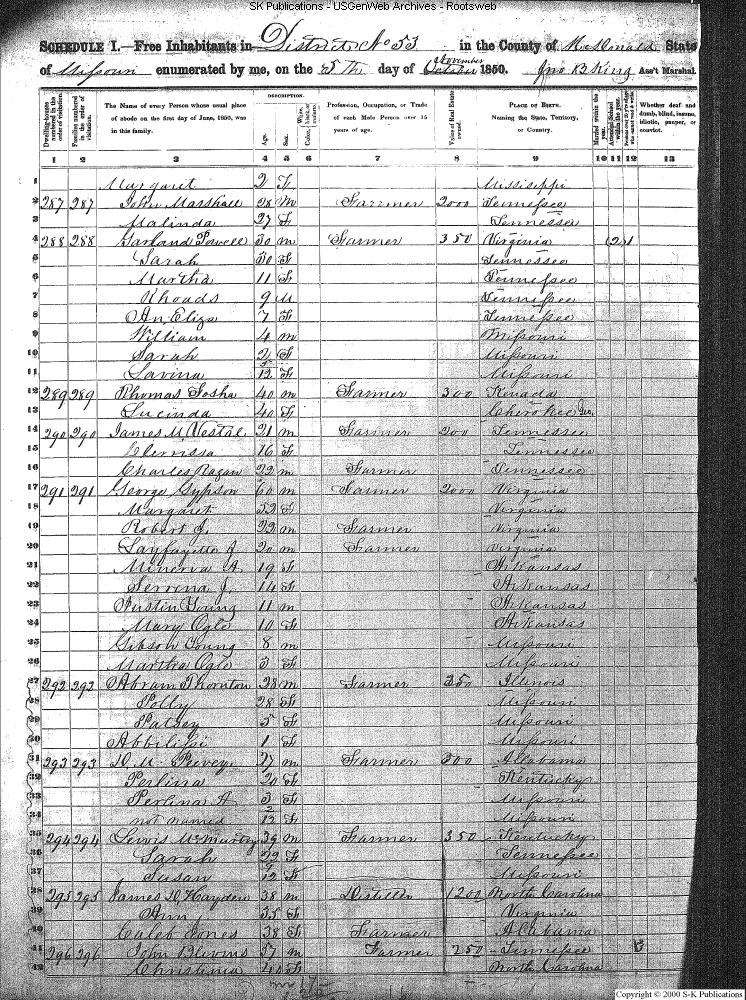 SK Publications - USGenWeb Archives - Rootsweb
SCHEDULE I.—Free Inhabitants in District No 53 in the County of McDonald State
of Missouri enumerated by me, on the 5th day of October November 1850. Jno B King Ass't Marshal.
DESCRIPTION.
Dwelling-houses numbered in the order of visitation. Families numbered in the order of visitation. The Name of every Person whose usual place of abode on the first day of June, 1850, was in this family. Age. Sex. White, black, or mulatto. Color Profession, Occupation, or Trade of each Male Person over 15 years of age. Value of Real Estate owned. PLACE OF BIRTH. Naming the State, Territory, or Country. Married within the year. Attended School within the year. Persons over 20 y'rs of age who cannot read & write. Whether deaf and dumb, blind, insane, idiotic, pauper, or convict.
1 2 3 4 5 6 7 8 9 10 11 12 13
1 Margaret 2 F Mississippi
2 287 287 John Marshall 28 M Farmer 2000 Tennessee
3 Malinda 27 F Tennessee
4 288 288 Garland Powell 30 m Farmer 350 Virginia (2) 1
5 Sarah 30 F Tennessee
6 Martha 11 F Tennessee
7 Rhoads 9 M Tennessee
8 An Eliza 7 F Tennessee
9 William 4 m Missouri
10 Sarah 2 F Missouri
11 Lavina 12 F Missouri
12 289 289 Thomas 40 m Farmer 300
13 Lucinda 40 F Cherokee
14 290 290 James M Vestal 21 m Farmer 200 Tennessee
15 Clerrissa 16 F Tennessee
16 Charles Ragan 22 m Farmer Tennessee
17 291 291 George Gypson 60 m Farmer 2000 Virginia
18 Margaret 52 F Virginia
19 Robert J. 22 m Farmer Virginia
20 Layfayette J. 20 m Farmer Virginia
21 Minerva A 19 F Arkansas
22 Serrena J. 14 F Arkansas
23 Austin Young 11 m Arkansas
24 Mary Ogle 10 F Arkansas
25 Gibson Young 8 m Missouri
26 Martha Ogle 3 F Missouri
27 292 292 Abram Thornton 28 m Farmer 350 Illinois
28 Polly 28 F Missouri
29 Patsey 5 F Missouri
30 1 F Missouri
31 293 293 D. M. Peevey 27 m Farmer 300 Alabama
32 Perlina 20 F Kentucky
33 Perlina A 3 F Missouri
34 not named 2/12 F Missouri
35 294 294 Lewis McMurtry 39 m Farmer 350 Kentucky
36 Sarah 22 F Tennessee
37 Susan 9/12 F Missouri
38 295 295 James D Hayden 38 m Distiller 1200 North Carolina
39 Ann 35 F Virginia
40 Caleb Jones 38 F Farmer Alabama
41 296 296 John Blevins 57 m Farmer 250 Tennessee
42 Christinia 48 F North Carolina
Copyright © 2000 S-K Publications